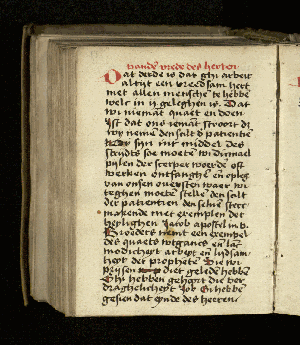 vanden vrede des herten
Dat derde is dat ghi arbeit
altijt een vreedsam hert
met allen mensche te hebbē
welc in ij geleghen is. Dat
wi niemāt quaet en doen
Ist dat ons iemāt stoort di
wy neme den scilt d patientie
syn int middel des
strijdts soe moetē wi dicmael
pijlen der scerper woerde of
werken ontfanghē en opleg
van onsen oversten waer wi
teghen moetē stelle den scilt
der patientien den selven sterc
makende met exemplen des
heylighen Jacob apostel in v.
Brouders nemt een exempel
des quaets wtgancs en lāc
modicheyt arbeyt en lijdsam
heyt der propheten Die wi
prysen die geleden hebben
Ghi hebben gehoort die ver
draghelicheyt Job Ghi hebbē
gesien dat eynde des heeren